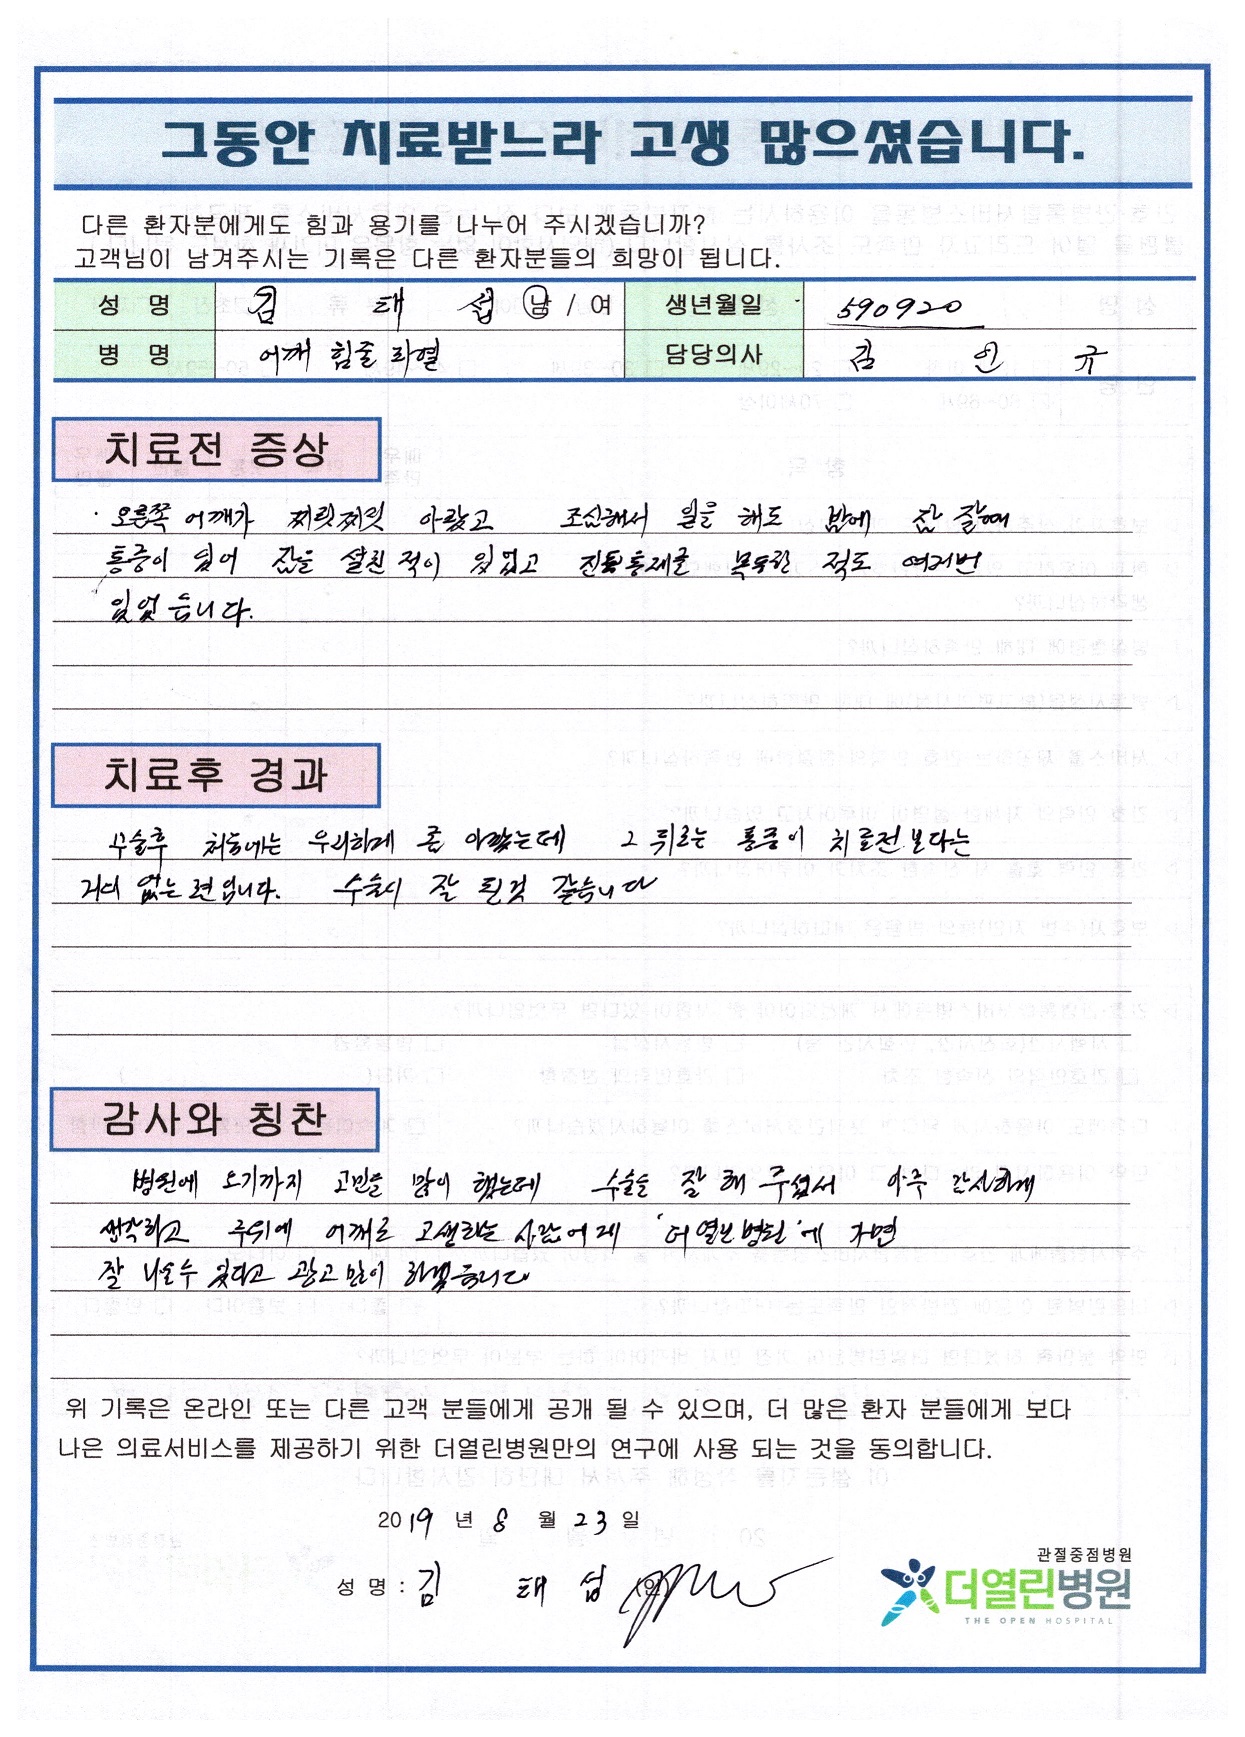 그동안 치료받느라 고생 많으셨습니다.
다른 환자분에게도 힘과 용기를 나누어 주시겠습니까?
고객님이 남겨주시는 기록은 다른 환자분들의 희망이 됩니다.
성 명 김 태 섭 남 / 여 생년월일 590920
병 명 어깨 힘줄 파열 담당의사 김 인 규
치료전 증상
오른쪽 어깨가 찌릿찌릿 아팠고 조심해서 일을 해도 밤에 잠 잘때
통증이 있어 잠을 설친 적이 있었고 진통제를 복용한 적도 여러번
있었습니다.
치료후 경과
수술후 처음에는 우리하게 좀 아팠는데 그 뒤로는 통증이 치료전보다는
거의 없는편입니다. 수술이 잘 된것 같습니다
감사와 칭찬
병원에 오기까지 고민을 많이 했는데 수술을 잘 해 주셔서 아주 감사하게
생각하고 주위에 어깨로 고생하는 사람에게 '더열린병원'에 가면
잘 나을수 있다고 광고 많이 하겠습니다
위 기록은 온라인 또는 다른 고객 분들에게 공개 될 수 있으며, 더 많은 환자 분들에게 보다
나은 의료서비스를 제공하기 위한 더열린병원만의 연구에 사용 되는 것을 동의합니다.
2019 년 8 월 23 일
성 명 : 김 태 섭 (인)
관절중점병원
더열린병원
THE OPEN HOSPITAL